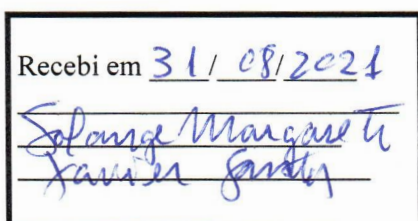 Recebi em 31/08/2021
Solange Margareti
Xavier